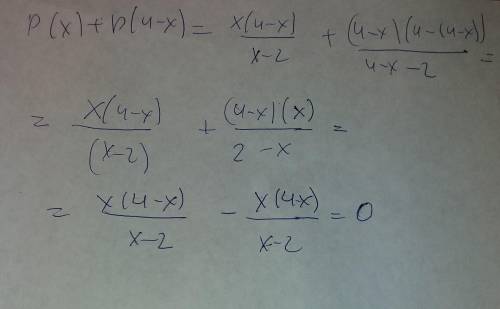 p(x)+p(4-x) = x(4-x)/(x-2) + (4-x)(4-(4-x))/(4-x-2) =
= x(4-x)/(x-2) + (4-x)(x)/(2-x) =
= x(4-x)/(x-2) - x(4-x)/(x-2) = 0